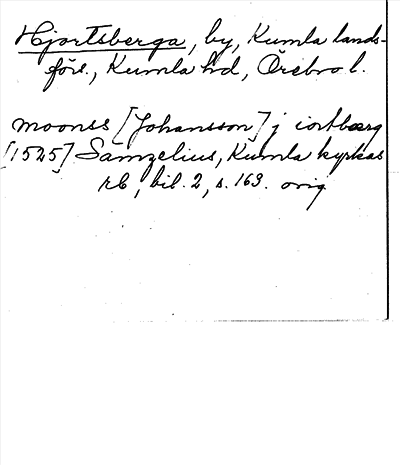 Hjortsberga, by, Kumla lands-
förs., Kumla hd, Örebro l.
moonss [Johansson] j iortbærg
[1525] Samzelius, Kumla kyrkas
rb, bil. 2, s. 163. orig